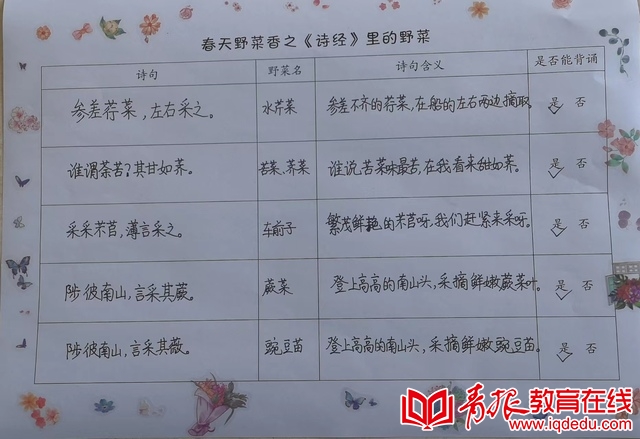 春天野菜香之《诗经》里的野菜
诗句 野菜名 诗句含义 是否能背诵
参差荇菜，左右采之。 水芹菜 参差不齐的荇菜，在船的左右两边摘取。 是 否
谁谓荼苦？其甘如荠。 苦菜、荠菜 谁说苦菜味最苦，在我看来甜如荠。 是 否
采采芣苢，薄言采之。 车前子 繁茂鲜艳的芣苢呀，我们赶紧来采呀。 是 否
陟彼南山，言采其蕨。 蕨菜 登上高高的南山头，采摘鲜嫩蕨菜叶。 是 否
陟彼南山，言采其薇。 豌豆苗 登上高高的南山头，采摘鲜嫩豌豆苗。 是 否
青报教育在线
www.iqdedu.com